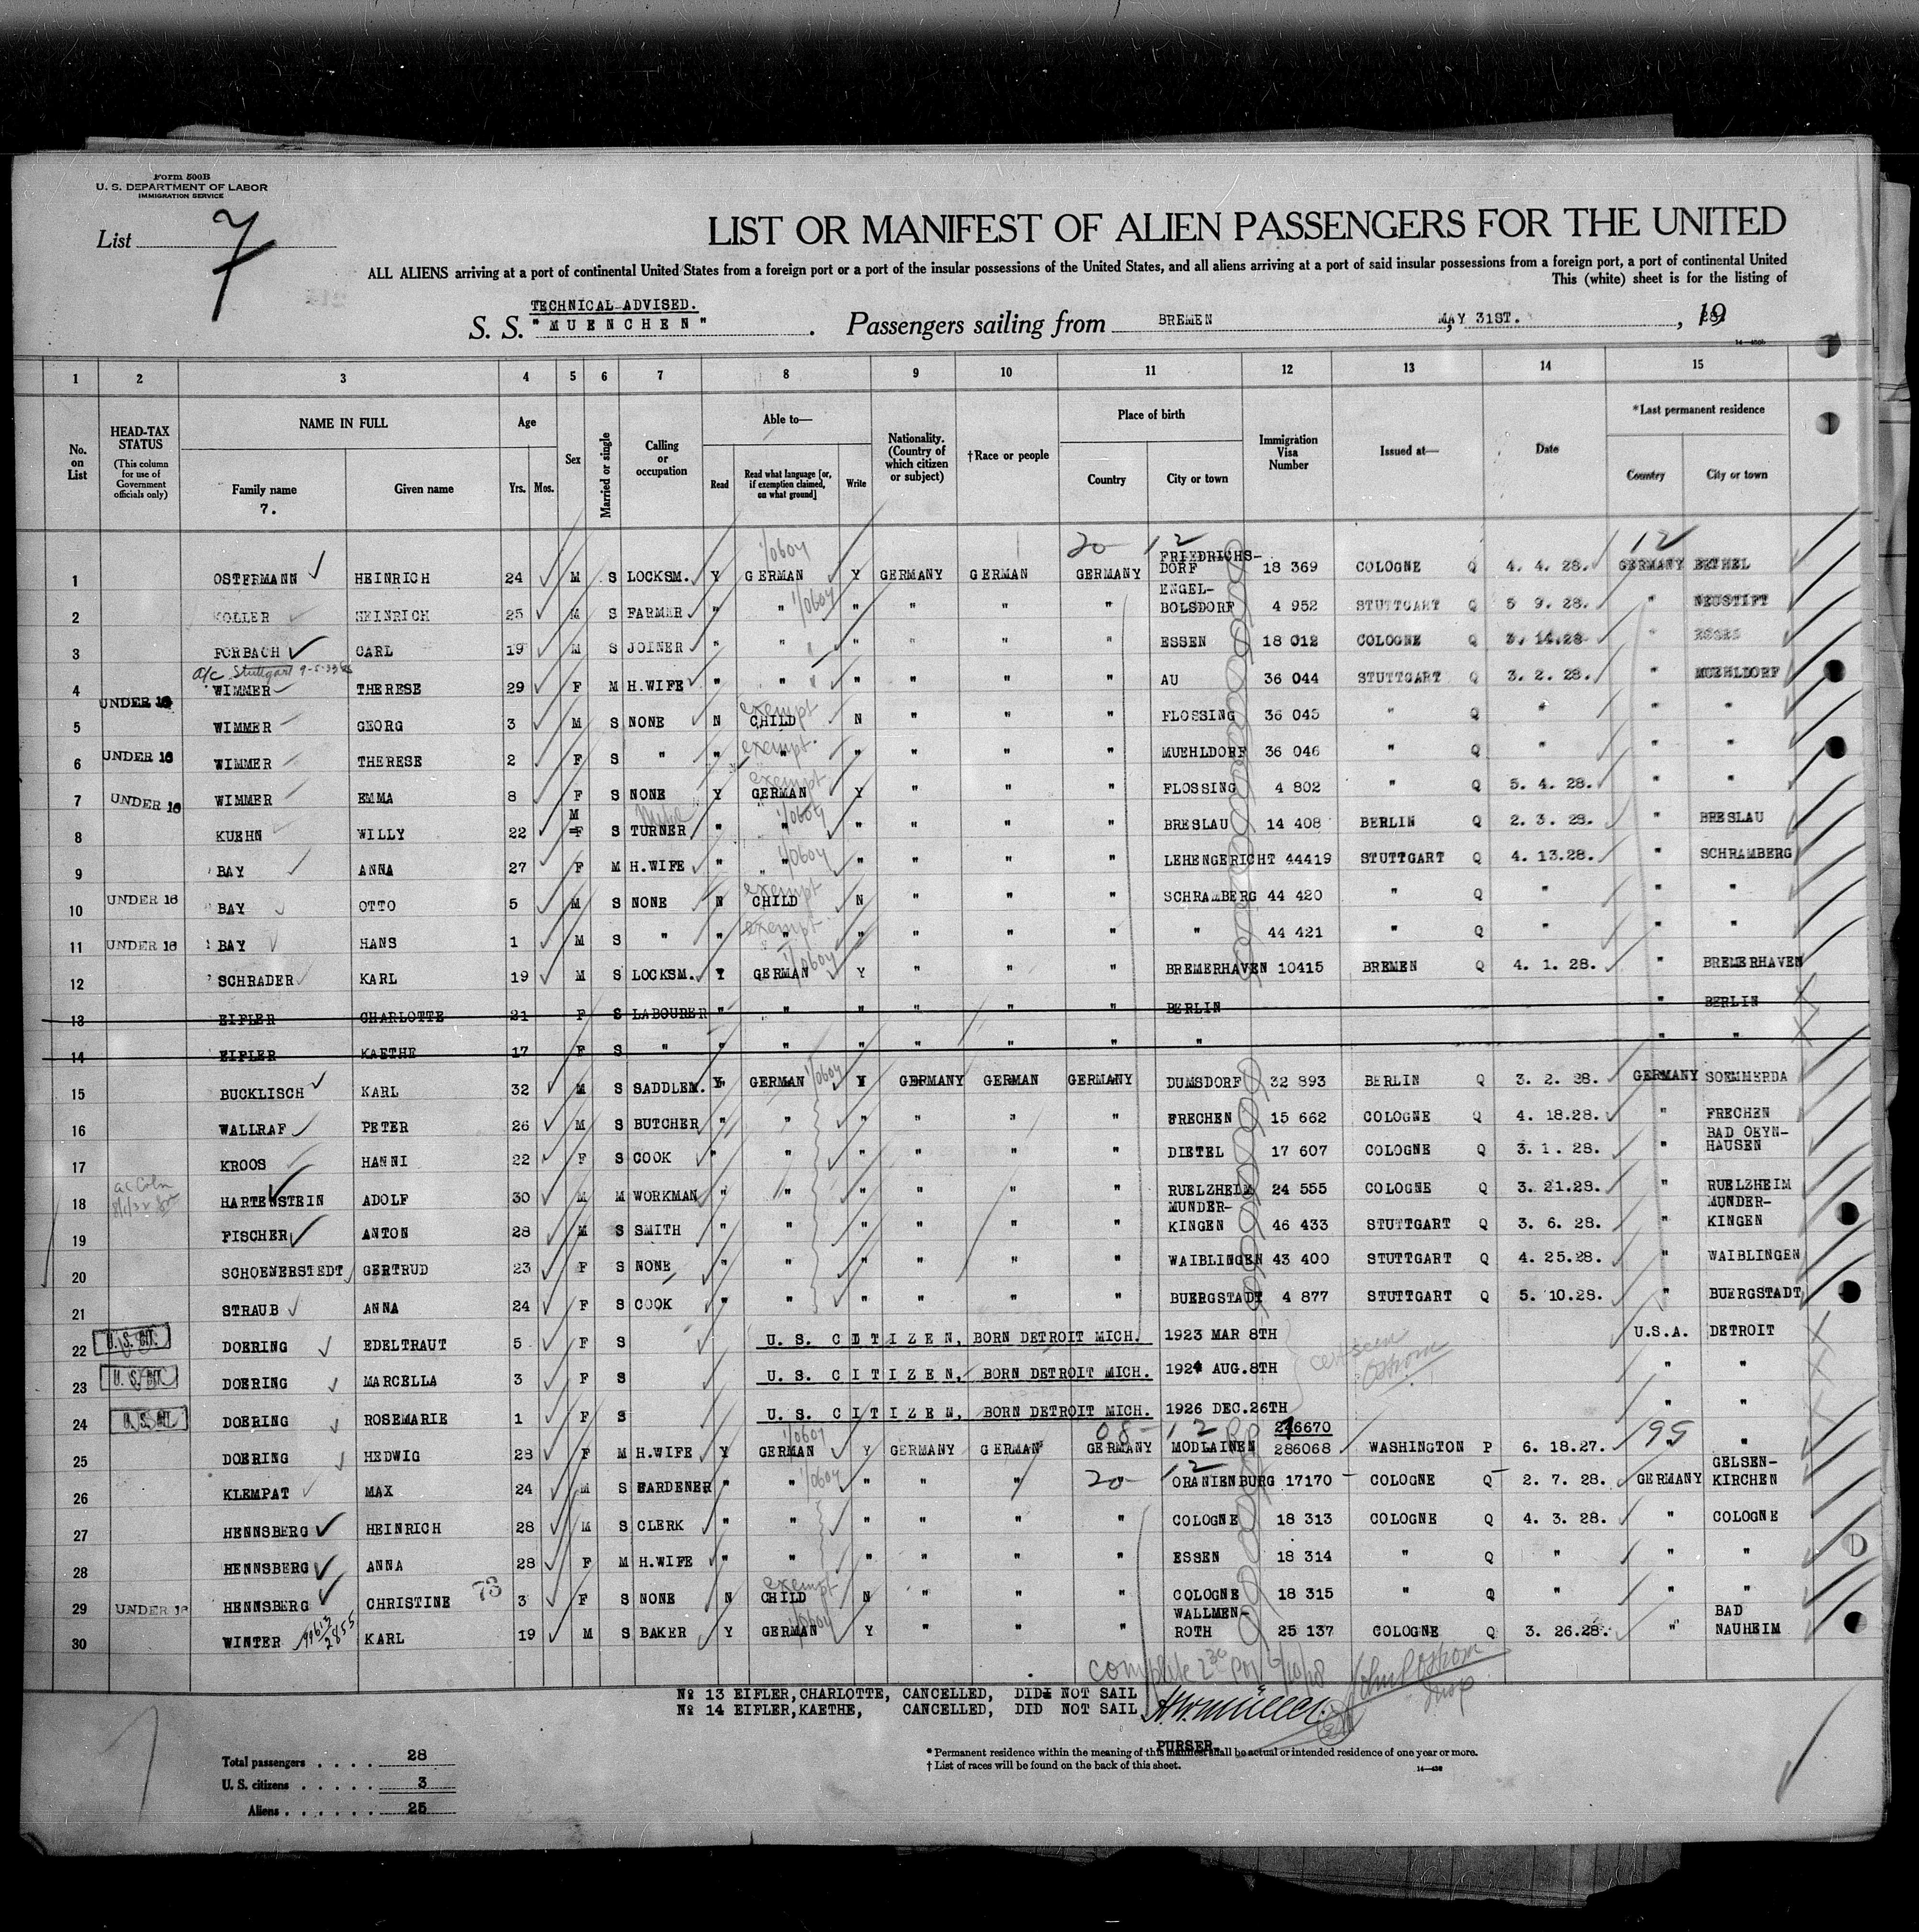 Form 500B
U. S. DEPARTMENT OF LABOR
IMMIGRATION SERVICE
List 7
LIST OR MANIFEST OF ALIEN PASSENGERS FOR THE UNITED
ALL ALIENS arriving at a port of continental United States from a foreign port or a port of the insular possessions of the United States, and all aliens arriving at a port of said insular possessions from a foreign port, a port of continental United
This (white) sheet is for the listing of
TECHNICAL ADVISED.
S. S. "MUENCHEN". Passengers sailing from BREMEN, MAY 31ST., 1928.
1 2 3 4 5 6 7 8 9 10 11 12 13 14 15
No. on List
HEAD-TAX STATUS (This column for use of Government officials only)
NAME IN FULL
Family name
7.
Given name
Age
Yrs. Mos.
Sex
Married or single
Calling or occupation
Able to—
Read
Read what language [or, if exemption claimed, on what ground]
Write
Nationality. (Country of which citizen or subject)
†Race or people
Place of birth
Country
City or town
Immigration Visa Number
Issued at—
Date
*Last permanent residence
Country
City or town
20 12 12
1 OSTERMANN HEINRICH 24 M S LOCKSM. Y GERMAN Y GERMANY GERMAN GERMANY FRIEDRICHS-DORF 18 369 COLOGNE Q 4. 4. 28. GERMANY BETHEL
2 KOLLER HEINRICH 25 M S FARMER " " " " " " ENGEL-BOLSDORF 4 952 STUTTGART Q 5 9. 28. " NEUSTIFT
3 FORBACH CARL 19 M S JOINER " " " " " " ESSEN 18 012 COLOGNE Q 3. 14.28 " ESSEN
a/c Stuttgart 9-5-33
4 WIMMER THERESE 29 F M H.WIFE " " " " " " AU 36 044 STUTTGART Q 3. 2. 28. " MUEHLDORF
5 UNDER 16 WIMMER GEORG 3 M S NONE N exempt CHILD N " " " FLOSSING 36 045 " Q " " "
6 UNDER 16 WIMMER THERESE 2 F S " " exempt " " " " " MUEHLDORF 36 046 " Q " " "
7 UNDER 16 WIMMER EMMA 8 F S NONE Y exempt GERMAN Y " " " FLOSSING 4 802 " Q 5. 4. 28. " "
8 KUEHN WILLY 22 M F S TURNER " " " " " " BRESLAU 14 408 BERLIN Q 2. 3. 28. " BRESLAU
9 BAY ANNA 27 F M H.WIFE " " " " " " LEHENGERICHT 44419 STUTTGART Q 4. 13.28. " SCHRAMBERG
10 UNDER 16 BAY OTTO 5 M S NONE N exempt CHILD N " " " SCHRAMBERG 44 420 " Q " " "
11 UNDER 16 BAY HANS 1 M S " " exempt " " " " " " 44 421 " Q " " "
12 SCHRADER KARL 19 M S LOCKSM. Y GERMAN Y " " " BREMERHAVEN 10415 BREMEN Q 4. 1. 28. " BREMERHAVEN
13 EIFLER CHARLOTTE 21 F S LABOURER " " " " " " BERLIN " BERLIN
14 EIFLER KAETHE 17 F S " " " " " " " " " "
15 BUCKLISCH KARL 32 M S SADDLEM. Y GERMAN Y GERMANY GERMAN GERMANY DUMSDORF 32 893 BERLIN Q 3. 2. 28. GERMANY SOEMMERDA
16 WALLRAF PETER 26 M S BUTCHER " " " " " " FRECHEN 15 662 COLOGNE Q 4. 18.28. " FRECHEN
17 KROOS HANNI 22 F S COOK " " " " " " DIETEL 17 607 COLOGNE Q 3. 1. 28. " BAD OEYN-HAUSEN
18 HARTENSTEIN ADOLF 30 M M WORKMAN " " " " " " RUELZHEIM 24 555 COLOGNE Q 3. 21.28. " RUELZHEIM
19 FISCHER ANTON 28 M S SMITH " " " " " " MUNDER-KINGEN 46 433 STUTTGART Q 3. 6. 28. " MUNDER-KINGEN
20 SCHOENERSTEDT GERTRUD 23 F S NONE " " " " " " WAIBLINGEN 43 400 STUTTGART Q 4. 25.28. " WAIBLINGEN
21 STRAUB ANNA 24 F S COOK " " " " " " BUERGSTADT 4 877 STUTTGART Q 5. 10.28. " BUERGSTADT
22 U. S. CIT. DOERING EDELTRAUT 5 F S U. S. CITIZEN, BORN DETROIT MICH. 1923 MAR 8TH U.S.A. DETROIT
23 U. S. CIT. DOERING MARCELLA 3 F S U. S. CITIZEN, BORN DETROIT MICH. 1924 AUG.8TH " "
24 U. S. CIT. DOERING ROSEMARIE 1 F S U. S. CITIZEN, BORN DETROIT MICH. 1926 DEC.26TH " "
25 DOERING HEDWIG 28 F M H.WIFE Y GERMAN Y GERMANY GERMAN 08 GERMANY 12 MODLAINEN 286068 WASHINGTON P 6. 18.27. 99 " "
26 KLEMPAT MAX 24 M S GARDENER " " " " " 20 " 12 ORANIENBURG 17170 COLOGNE Q 2. 7. 28. GERMANY GELSEN-KIRCHEN
27 HENNSBERG HEINRICH 28 M S CLERK " " " " " " COLOGNE 18 313 COLOGNE Q 4. 3. 28. " COLOGNE
28 HENNSBERG ANNA 28 F M H.WIFE " " " " " " ESSEN 18 314 " Q " " "
29 UNDER 16 HENNSBERG CHRISTINE 73 3 F S NONE N exempt CHILD N " " " COLOGNE 18 315 " Q " " "
30 WINTER KARL 19 M S BAKER Y GERMAN Y " " " WALLMEN-ROTH 25 137 COLOGNE Q 3. 26.28. " BAD NAUHEIM
complete
№ 13 EIFLER,CHARLOTTE, CANCELLED, DID NOT SAIL
№ 14 EIFLER,KAETHE, CANCELLED, DID NOT SAIL
PURSER.
Total passengers . . . . 28
U. S. citizens . . . . 3
Aliens . . . . . . 25
* Permanent residence within the meaning of this manifest shall be actual or intended residence of one year or more.
† List of races will be found on the back of this sheet.